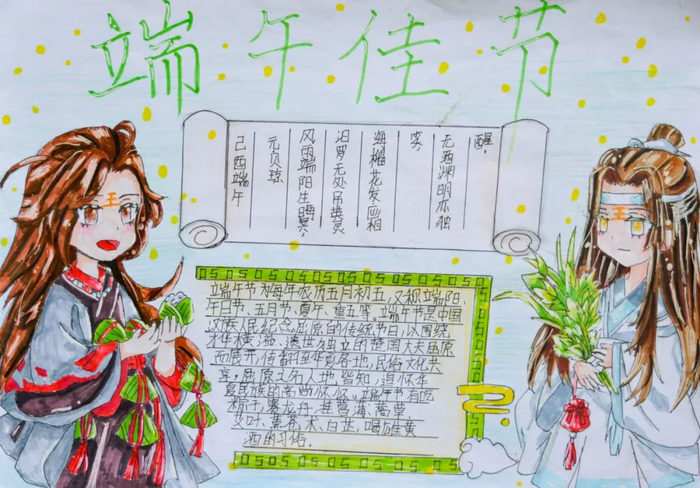 端午佳节
己酉端午
元贝琼
风雨端阳生晦冥,
汨罗无处吊英灵
海榴花发应相
笑,
无酒渊明亦独
醒。
端午节为每年农历五月初五,又称端阳、
午日节、五月节、夏午、重五等,端午节是中国
汉族人民纪念屈原的传统节日,以围绕
才华横溢、遗世独立的楚国大夫屈原
而展开,传播至华夏各地,民俗文化共
享,屈原之名人地皆知,追怀华
夏民族的高尚情怀。端午节有吃
粽子,赛龙舟,挂菖蒲、蒿草
艾叶,薰苍术、白芷,喝雄黄
酒的习俗。